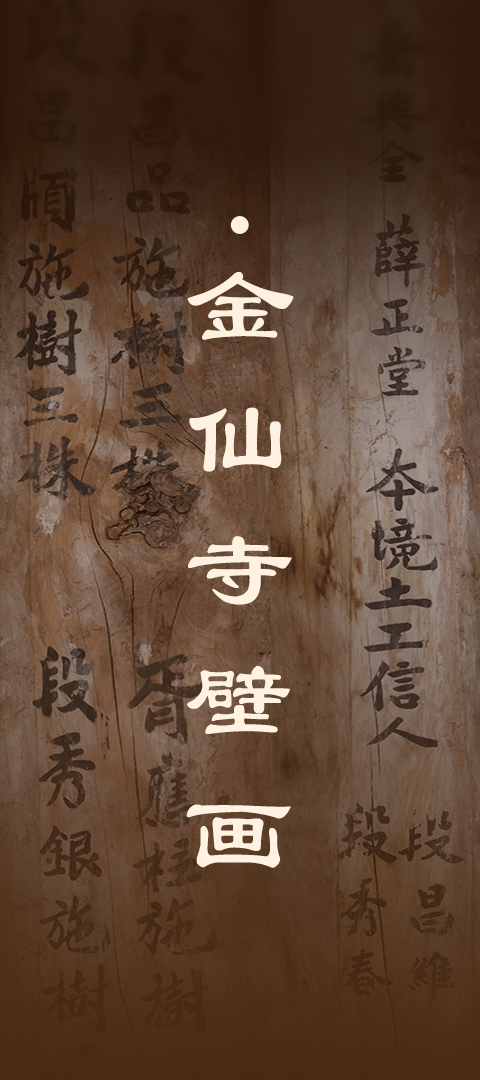 ·金仙寺壁画
岳典全
薛正堂
本境土工信人
段昌維
段秀春
段昌品施樹三株
胥應柱施樹
段昌順施樹三株
段秀銀施樹